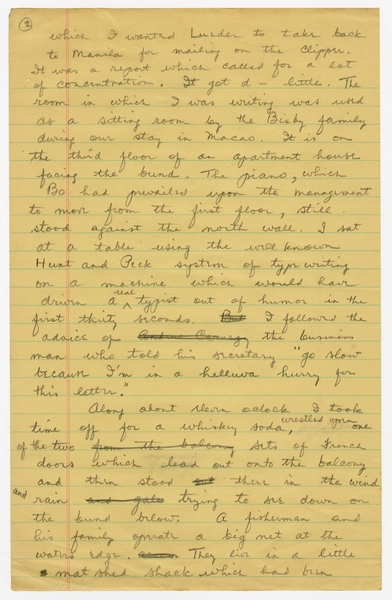 2
which I wanted Lueder to take back
to Manila for mailing on the Clipper.
It was a report which called for a lot
of concentration. It got d— little. The
room in which I was writing was used
as a sitting room by the Bixby family
during our stay in Macao. It is on
the third floor of an apartment house
facing the bund. The piano, which
Bo had prevailed upon the management
to move from the first floor, still
stood against the north wall. I sat
at a table using the well known
Hunt and Peck system of typewriting
on a machine which would have
driven a real typist out of humor in the
first thirty seconds. But I followed the
advice of the business
man who told his secretary "go slow
because I'm in a helluva hurry for
this letter."
Along about eleven oclock I took
time off for a whiskey soda, wrestled open one
of the two from the balcony sets of French
doors which lead out onto the balcony
and then stood out there in the wind
and rain and gale trying to see down on
the bund below. A fisherman and
his family operate a big net at the
waters edge. They live in a little
mat shed shack which had been